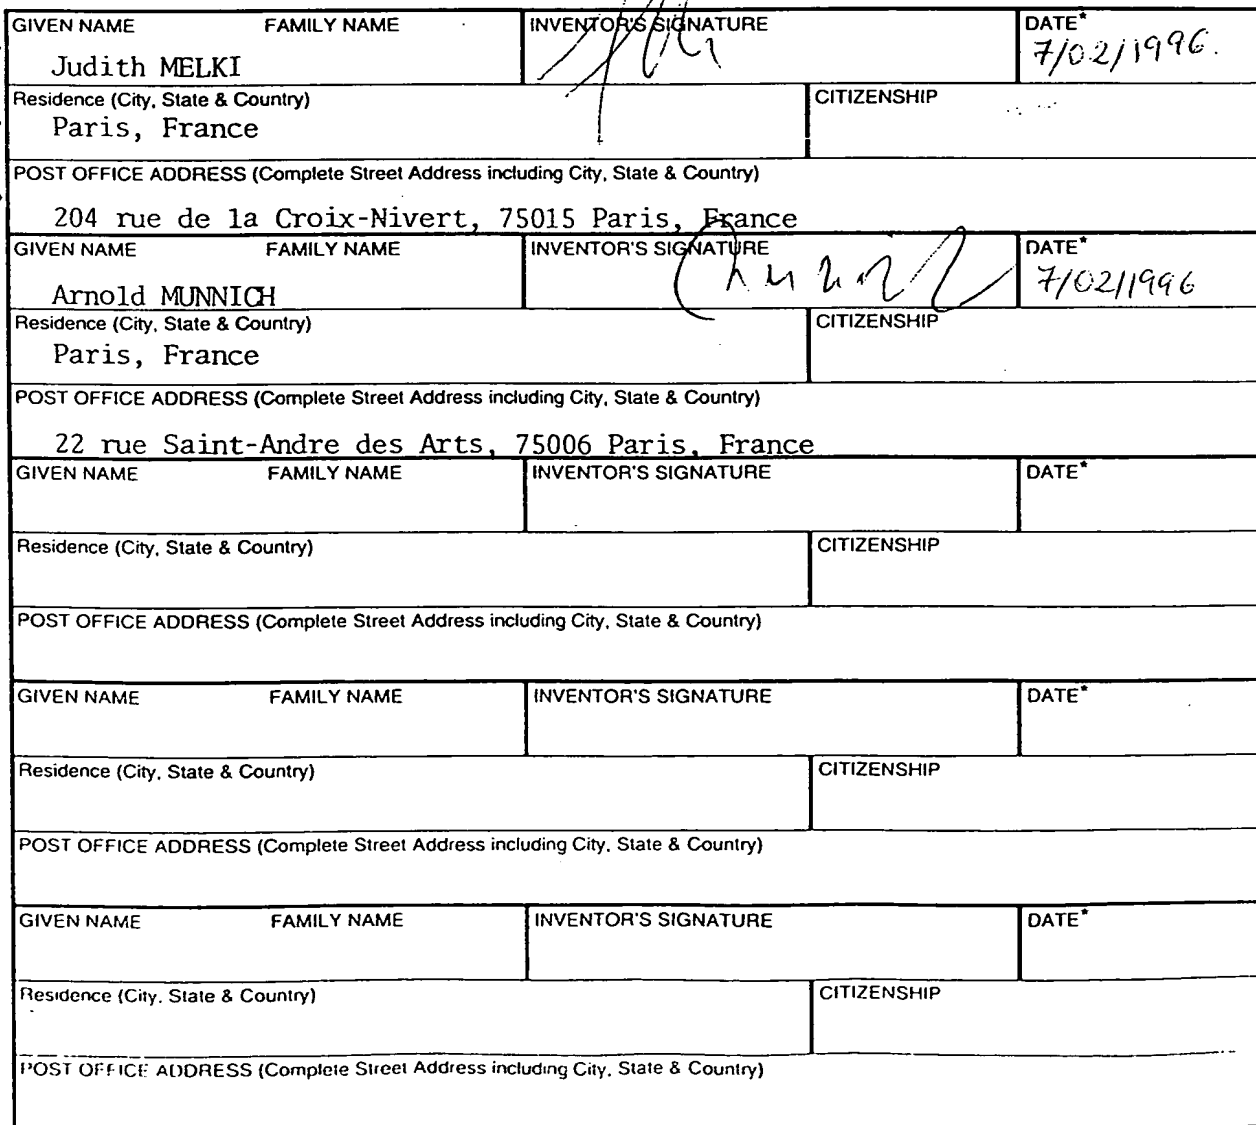 GIVEN NAME FAMILY NAME INVENTOR'S SIGNATURE DATE*
Judith MELKI 7/02/1996.
Residence (City, State & Country) CITIZENSHIP
Paris, France
POST OFFICE ADDRESS (Complete Street Address including City, State & Country)
204 rue de la Croix-Nivert, 75015 Paris, France
GIVEN NAME FAMILY NAME INVENTOR'S SIGNATURE DATE*
Arnold MUNNICH 7/02/1996
Residence (City, State & Country) CITIZENSHIP
Paris, France
POST OFFICE ADDRESS (Complete Street Address including City, State & Country)
22 rue Saint-Andre des Arts, 75006 Paris, France
GIVEN NAME FAMILY NAME INVENTOR'S SIGNATURE DATE*
Residence (City, State & Country) CITIZENSHIP
POST OFFICE ADDRESS (Complete Street Address including City, State & Country)
GIVEN NAME FAMILY NAME INVENTOR'S SIGNATURE DATE*
Residence (City, State & Country) CITIZENSHIP
POST OFFICE ADDRESS (Complete Street Address including City, State & Country)
GIVEN NAME FAMILY NAME INVENTOR'S SIGNATURE DATE*
Residence (City, State & Country) CITIZENSHIP
POST OFFICE ADDRESS (Complete Street Address including City, State & Country)